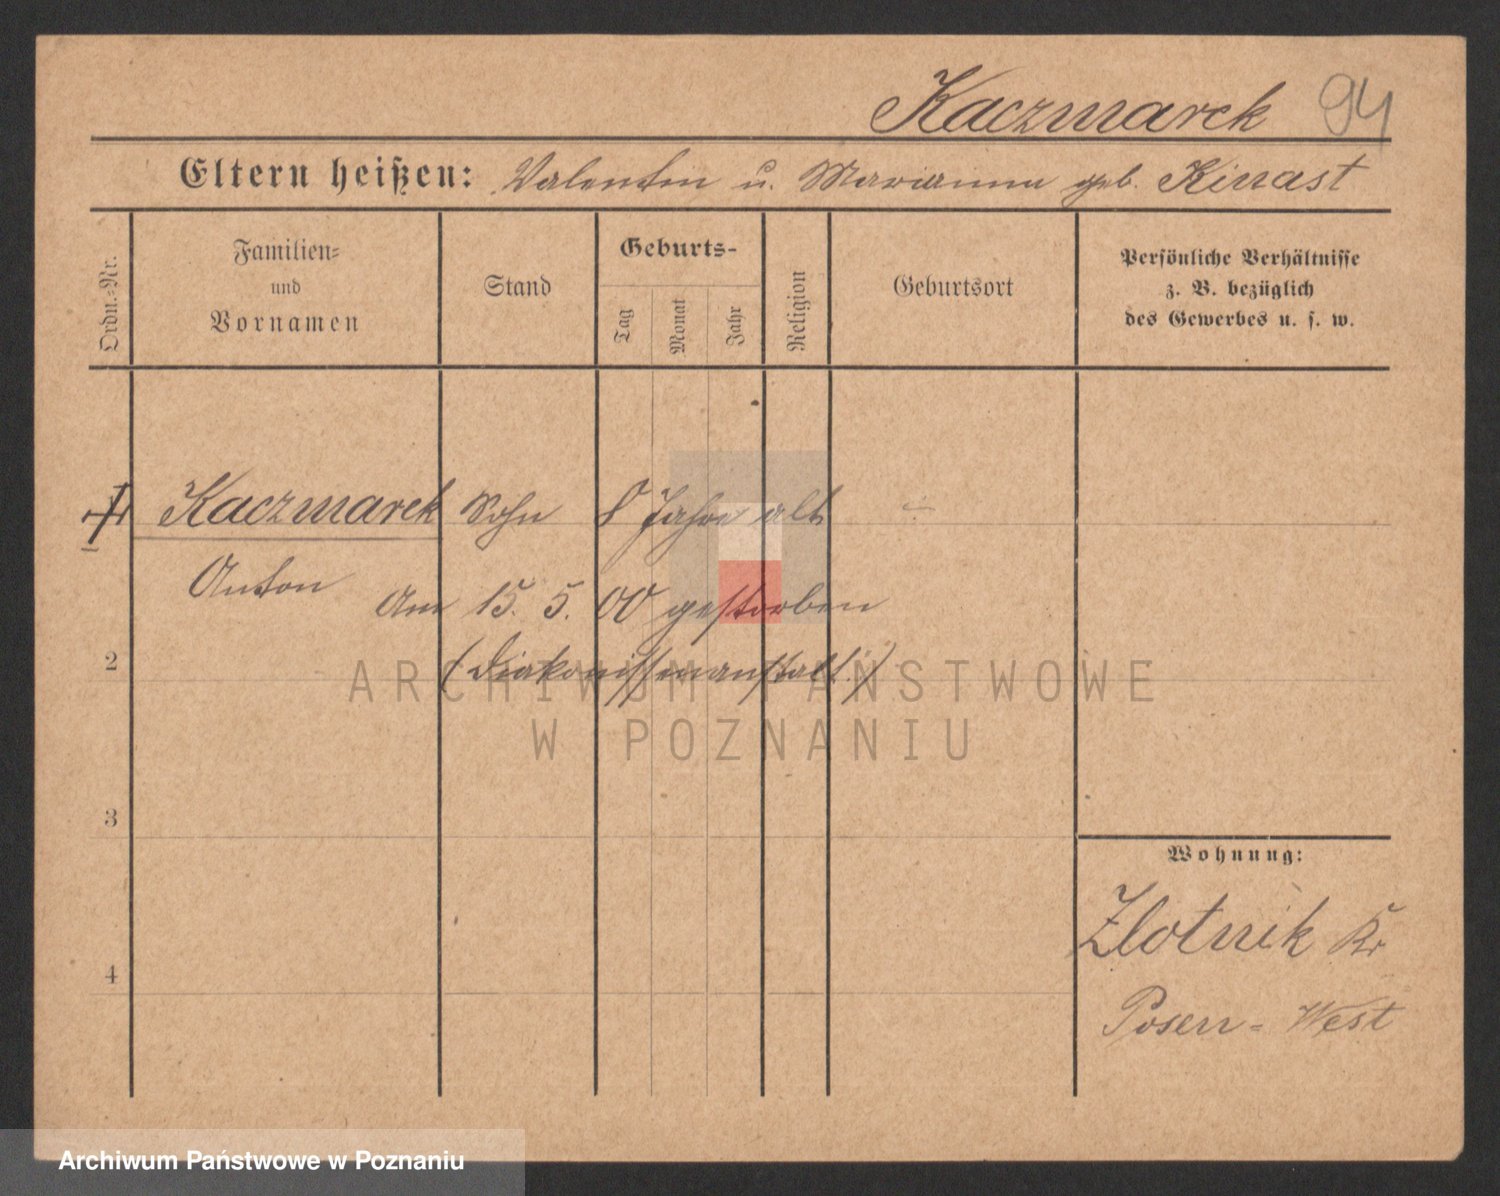 Kaczmarek 94
Eltern heißen: Valentin u. Marianna geb. Kinast
Ordn.-Nr.
Familien-
und
Vornamen
Stand
Geburts-
Tag
Monat
Jahr
Religion
Geburtsort
Persönliche Verhältnisse
z. B. bezüglich
des Gewerbes u. s. w.
Kaczmarek Sohn 8 Jahre alt
Anton
Am 15. 5. 00 gestorben
2 (Diakonissenanstalt.)
ARCHIWUM PAŃSTWOWE
W POZNANIU
3
Wohnung:
Zlotnik Kr
4
Posen-West
Archiwum Państwowe w Poznaniu